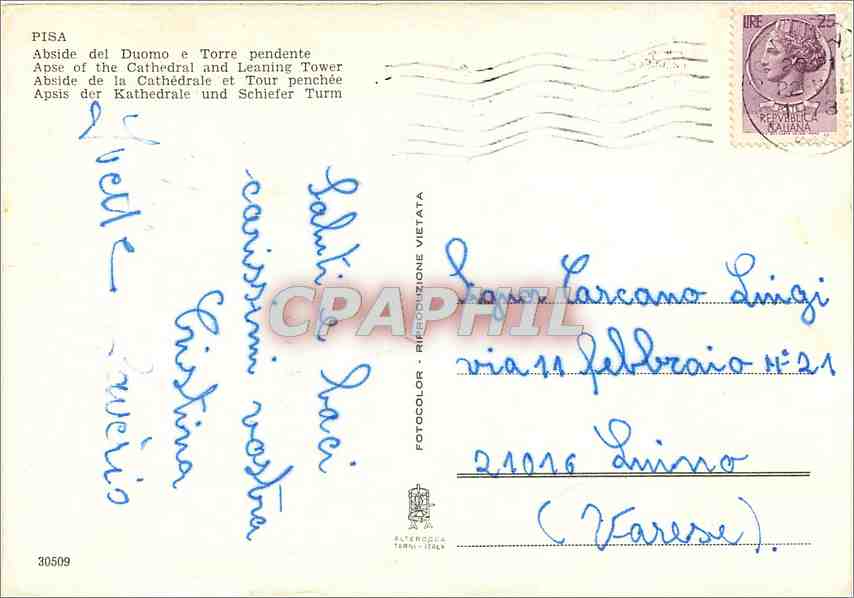 PISA
Abside del Duomo e Torre pendente
Apse of the Cathedral and Leaning Tower
Abside de la Cathédrale et Tour penchée
Apsis der Kathedrale und Schiefer Turm
LIRE 25
REPVBBLICA
ITALIANA
Saluti e baci
carissimi vostra
Cristina
Yvette
Savério
FOTOCOLOR - RIPRODUZIONE VIETATA
CPAPHIL
Carcano Luigi
via 11 febbraio N° 21
21016 Luino
(Varese).
ALTEROCCA
TERNI - ITALY
30509